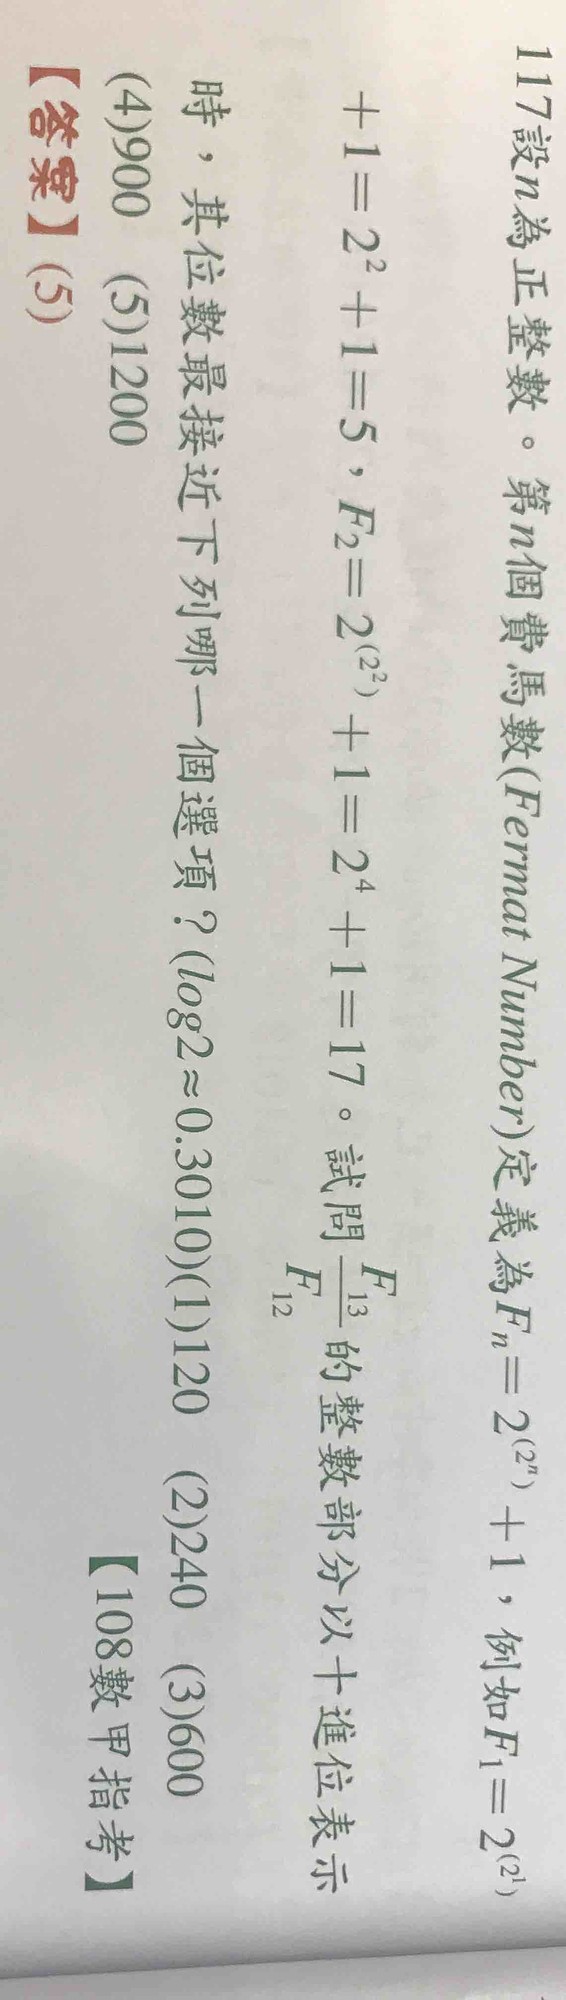 117設n為正整數。第n個費馬數(Fermat Number)定義為Fₙ＝2^(2ⁿ)＋1，例如F₁＝2^(2¹)
＋1＝2²＋1＝5，F₂＝2^(2²)＋1＝2⁴＋1＝17。試問F₁₃/F₁₂的整數部分以十進位表示
時，其位數最接近下列哪一個選項？(log2≈0.3010)(1)120 (2)240 (3)600
(4)900 (5)1200 【108數甲指考】
【答案】(5)